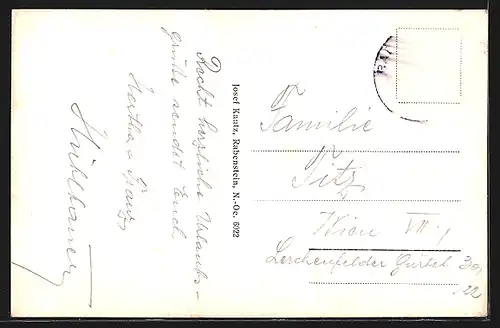 Recht herzliche Urlaubs-
grüße sendet Euch
Hertha & Franz
Mühlbauer
Josef Kautz, Rabenstein, N.-Oe. 6922
Familie
Titz
Wien VII.,
Lerchenfelder Gürtel 30
/22